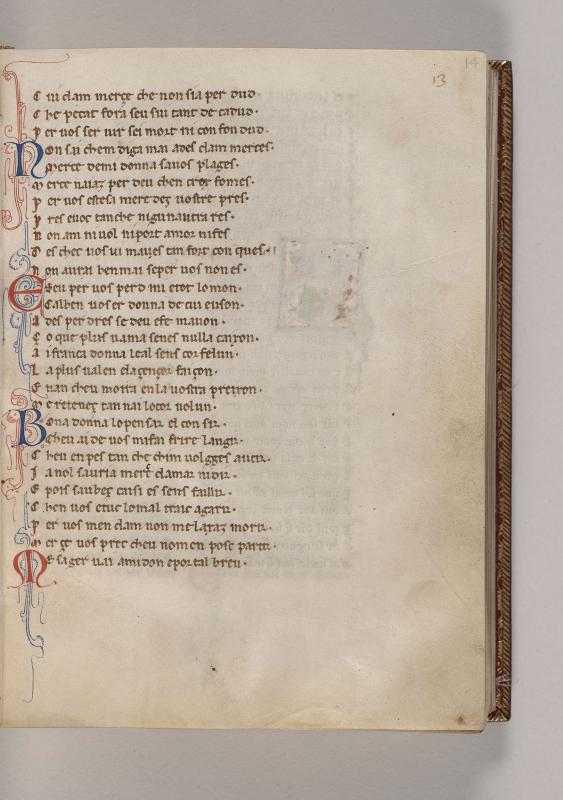 14
13
C ui clam merçe che non sia per dud·
C he pecat fora seu sui tant de cadud·
P er uos ser uir sei mort ni con fon dud·
N on sai chem diga mai ades clam merces·
Merce demi donna sauos plages·
M erce naiaz per deu chen crez fomes·
P er uos estesa merc dez uostre pres·
P res euoc tanche nigunautra res·
N on am ni uol niport amor nifes
D es chec uos ui mauses tan fort con ques·
N on aurai ben mai seper uos non es·
E seu per uos perdo mi etot lo mon·
Calben uos er donna de cui euson·
A des per dres se deu efe mauon·
C o que plus uama senes nulla caixon·
A i franca donna leal sens cor felun·
L a plus ualen elaçençor faiçon·
E nan cheu moira en la uostra preixon·
M e retenez tan nai locor uolun·
B ona donna lo pensar el con sir·
Cheu ai de uos mifai frire langir·
C heu en pes tan che chim uolgges aucir·
I a nol sauria merc clamar ni dir·
E pois saubez caisi es sens faillir·
C hen uos etuc lomal traic agarir·
P er uos men clam non me laxaz morir·
M er ce uos prec cheu nom en posc partir·
M esager uai amidon eportal breu·